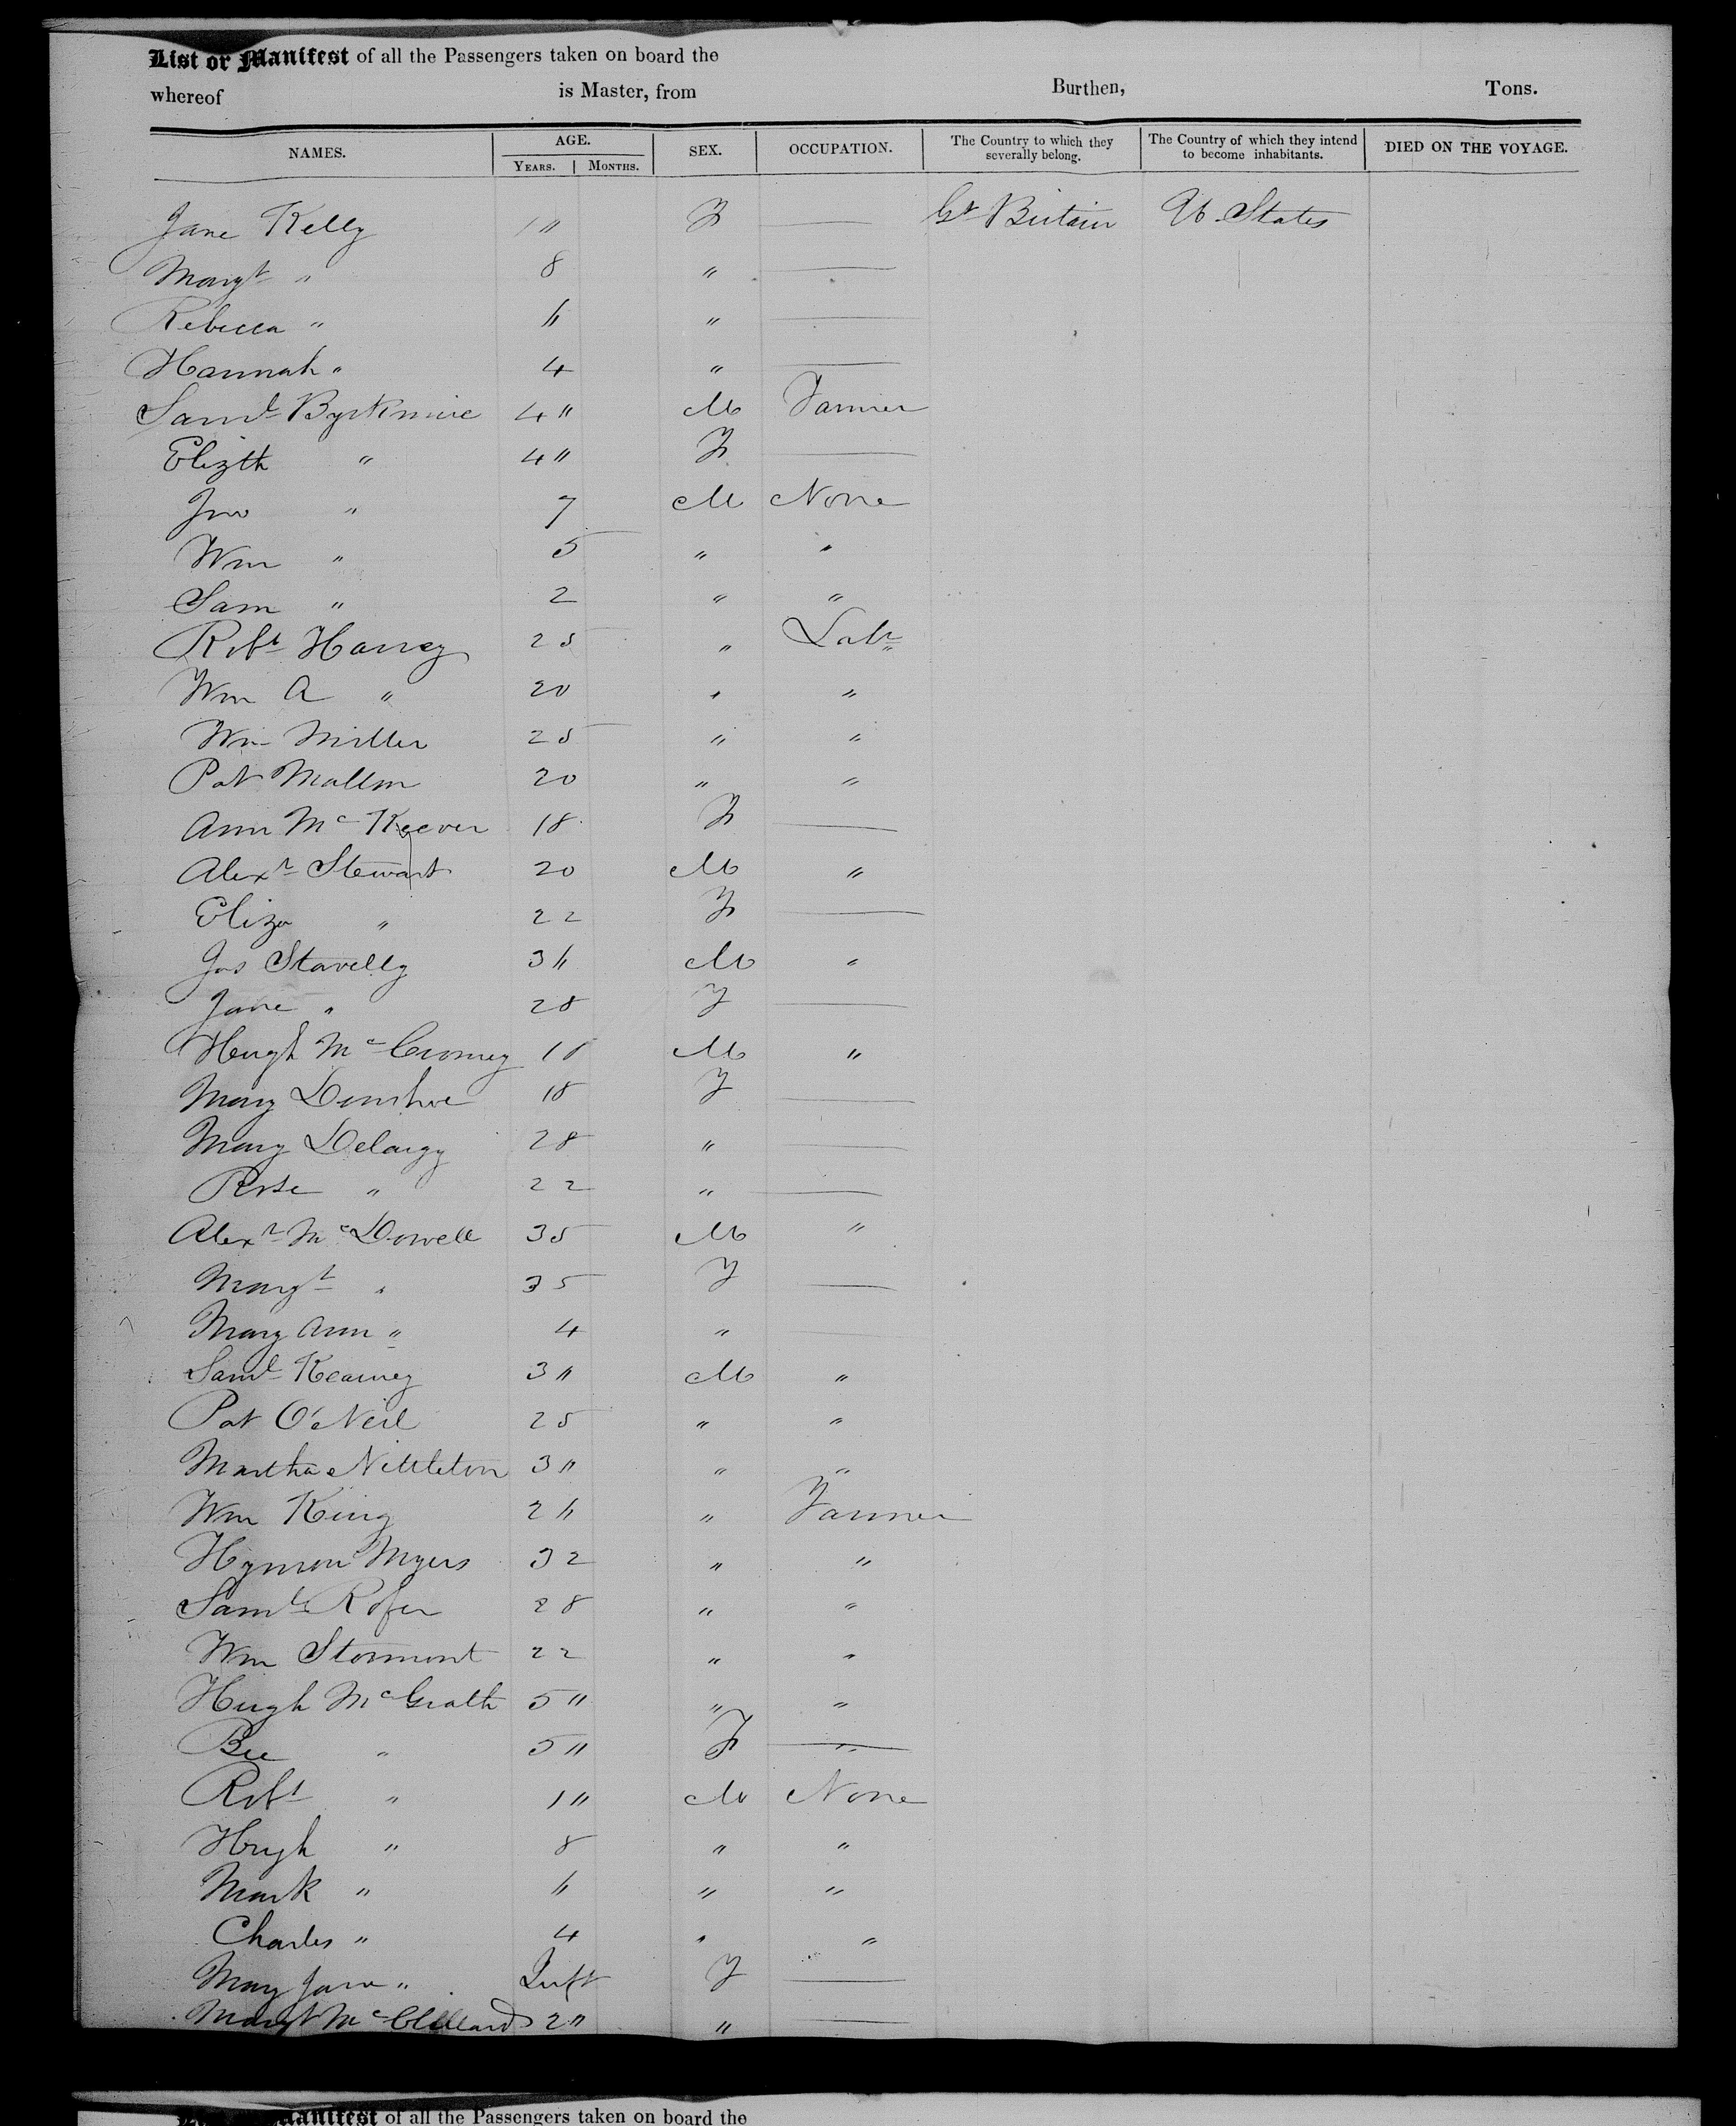 List or Manifest of all the Passengers taken on board the
whereof is Master, from Burthen, Tons.
NAMES. AGE. SEX. OCCUPATION. The Country to which they severally belong. The Country of which they intend to become inhabitants. DIED ON THE VOYAGE.
YEARS. MONTHS.
Jane Kelly 1" F — Gt Britain U States
Margt " 8 " —
Rebecca " 6 " —
Hannah " 4 " —
Saml 4" M Farmer
Elizth " 4" F —
Jno " 7 M None
Wm " 5 " "
Sam " 2 " "
Robt Harvey 25 " Labr
Wm A " 20 " "
Wm Miller 25 " "
Pat Mallon 20 " "
Ann McKeever 18 F —
Alexr Stewart 20 M "
Eliza " 22 F —
Jas Stavelly 36 M "
Jane " 28 F —
Hugh 18 M "
Mary 18 F —
Mary Delargy 28 " —
Rose " 22 " —
Alexr McDowell 35 M "
Margt " 35 F —
Mary Ann " 4 " —
Saml Kearney 3" M "
Pat O'Neil 25 " "
Martha Nettleton 3" " "
Wm King 26 " Farmer
Hymen Myers 32 " "
Saml 28 " "
Wm Stormont 22 " "
Hugh McGrath 5" " "
Bee " 5" F —
Robt " 1" M None
Hugh " 8 " "
Mark " 6 " "
Charles " 4 " "
Mary Jane " Inft F —
Margt McClelland 2" " —
Manifest of all the Passengers taken on board the